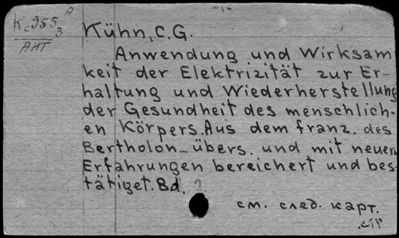 Kühn, C.G.
Anwendung und Wirksam
keit der Elektrizität zur Er-
haltung und Wiederherstellung
der Gesundheit des menschlich-
en Körpers. Aus dem franz. des
Bertholon... übers. und mit neuen
Erfahrungen bereichert und bes
tätiget. Bd.
см. след. карт.